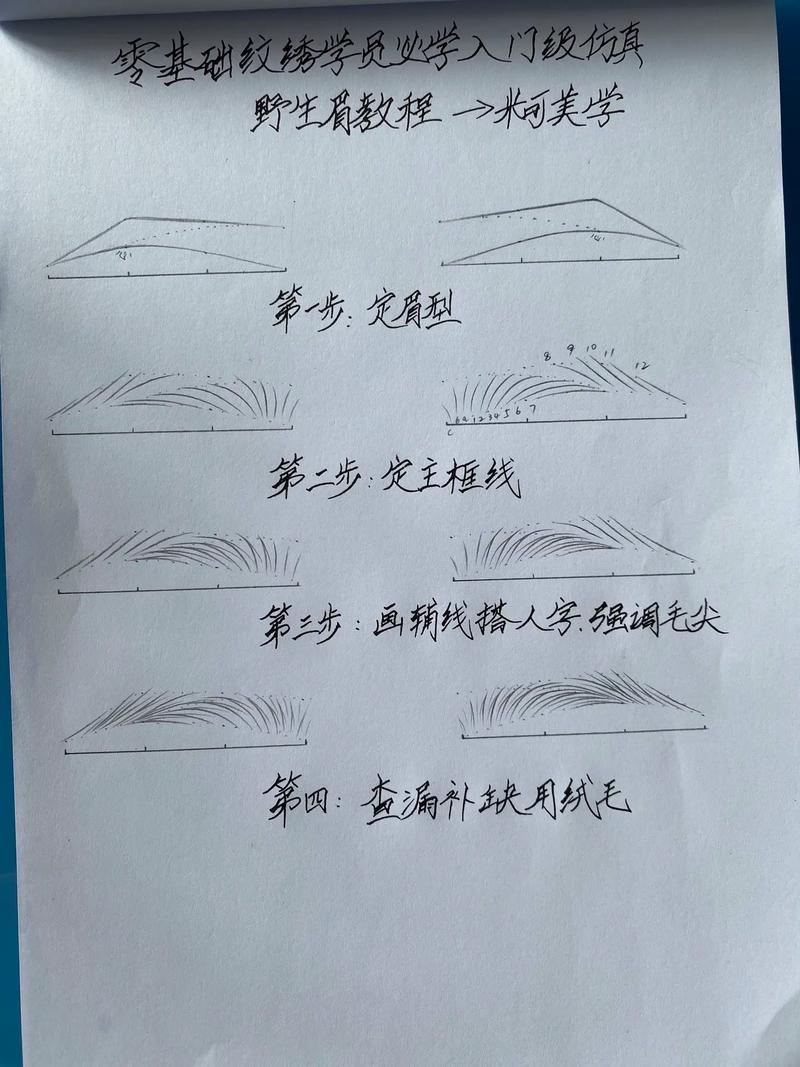 零基础纹绣学员必学入门级仿真
野生眉教程→米可美学
第一步:定眉型
8 9 10 11 12
1 2 3 4 5 6 7
第二步:定主框线
第三步:画辅线搭人字.强调毛尖
第四:查漏补缺用绒毛